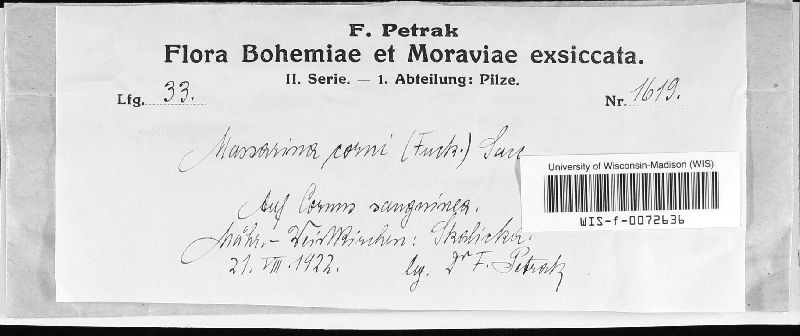 F. Petrak
Flora Bohemiae et Moraviae exsiccata.
II. Serie. — 1. Abteilung: Pilze.
Lfg. 33. Nr. 1619.
Massarina corni (Fuck.) Sacc
University of Wisconsin-Madison (WIS)
WIS-f-0072636
Auf Cornus sanguinea.
Mähr.-Weisskirchen: Skalicka.
21. VIII. 1922. lg. Dr F. Petrak